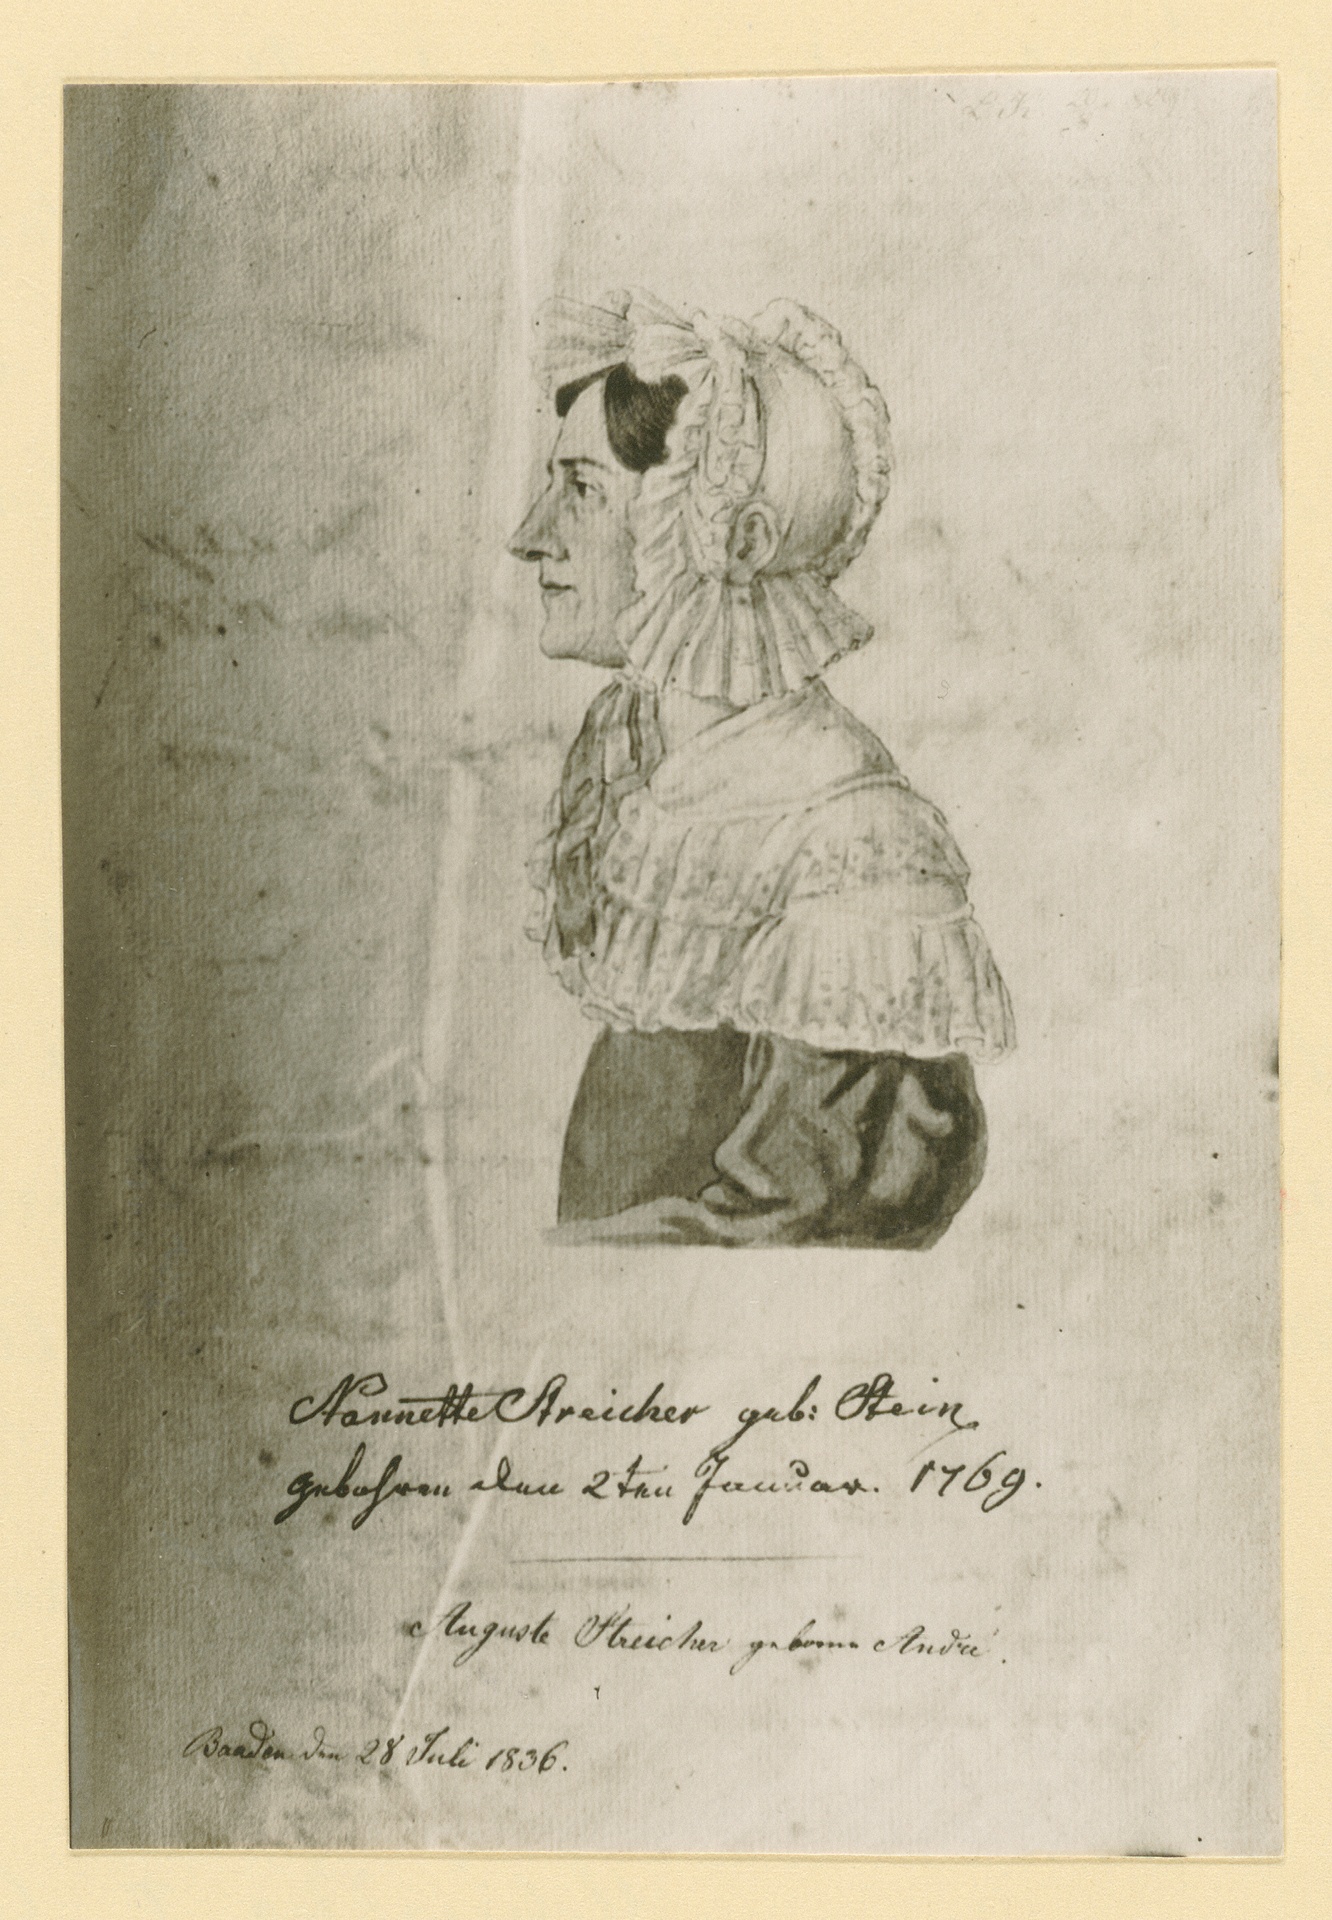 Nannette Streicher geb: Stein
gebohren den 2ten Januar. 1769.
Auguste Streicher geborne André.
Baaden den 28 Juli 1836.